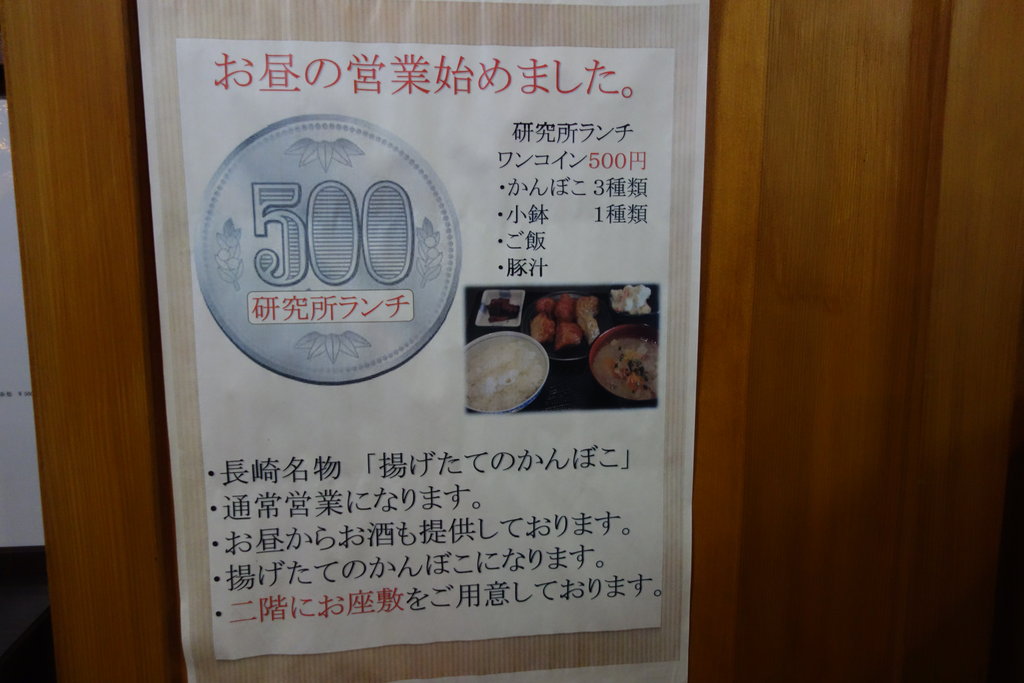 お昼の営業始めました。
500
研究所ランチ
研究所ランチ
ワンコイン500円
・かんぼこ 3種類
・小鉢 1種類
・ご飯
・豚汁
・長崎名物 「揚げたてのかんぼこ」
・通常営業になります。
・お昼からお酒も提供しております。
・揚げたてのかんぼこになります。
・二階にお座敷をご用意しております。